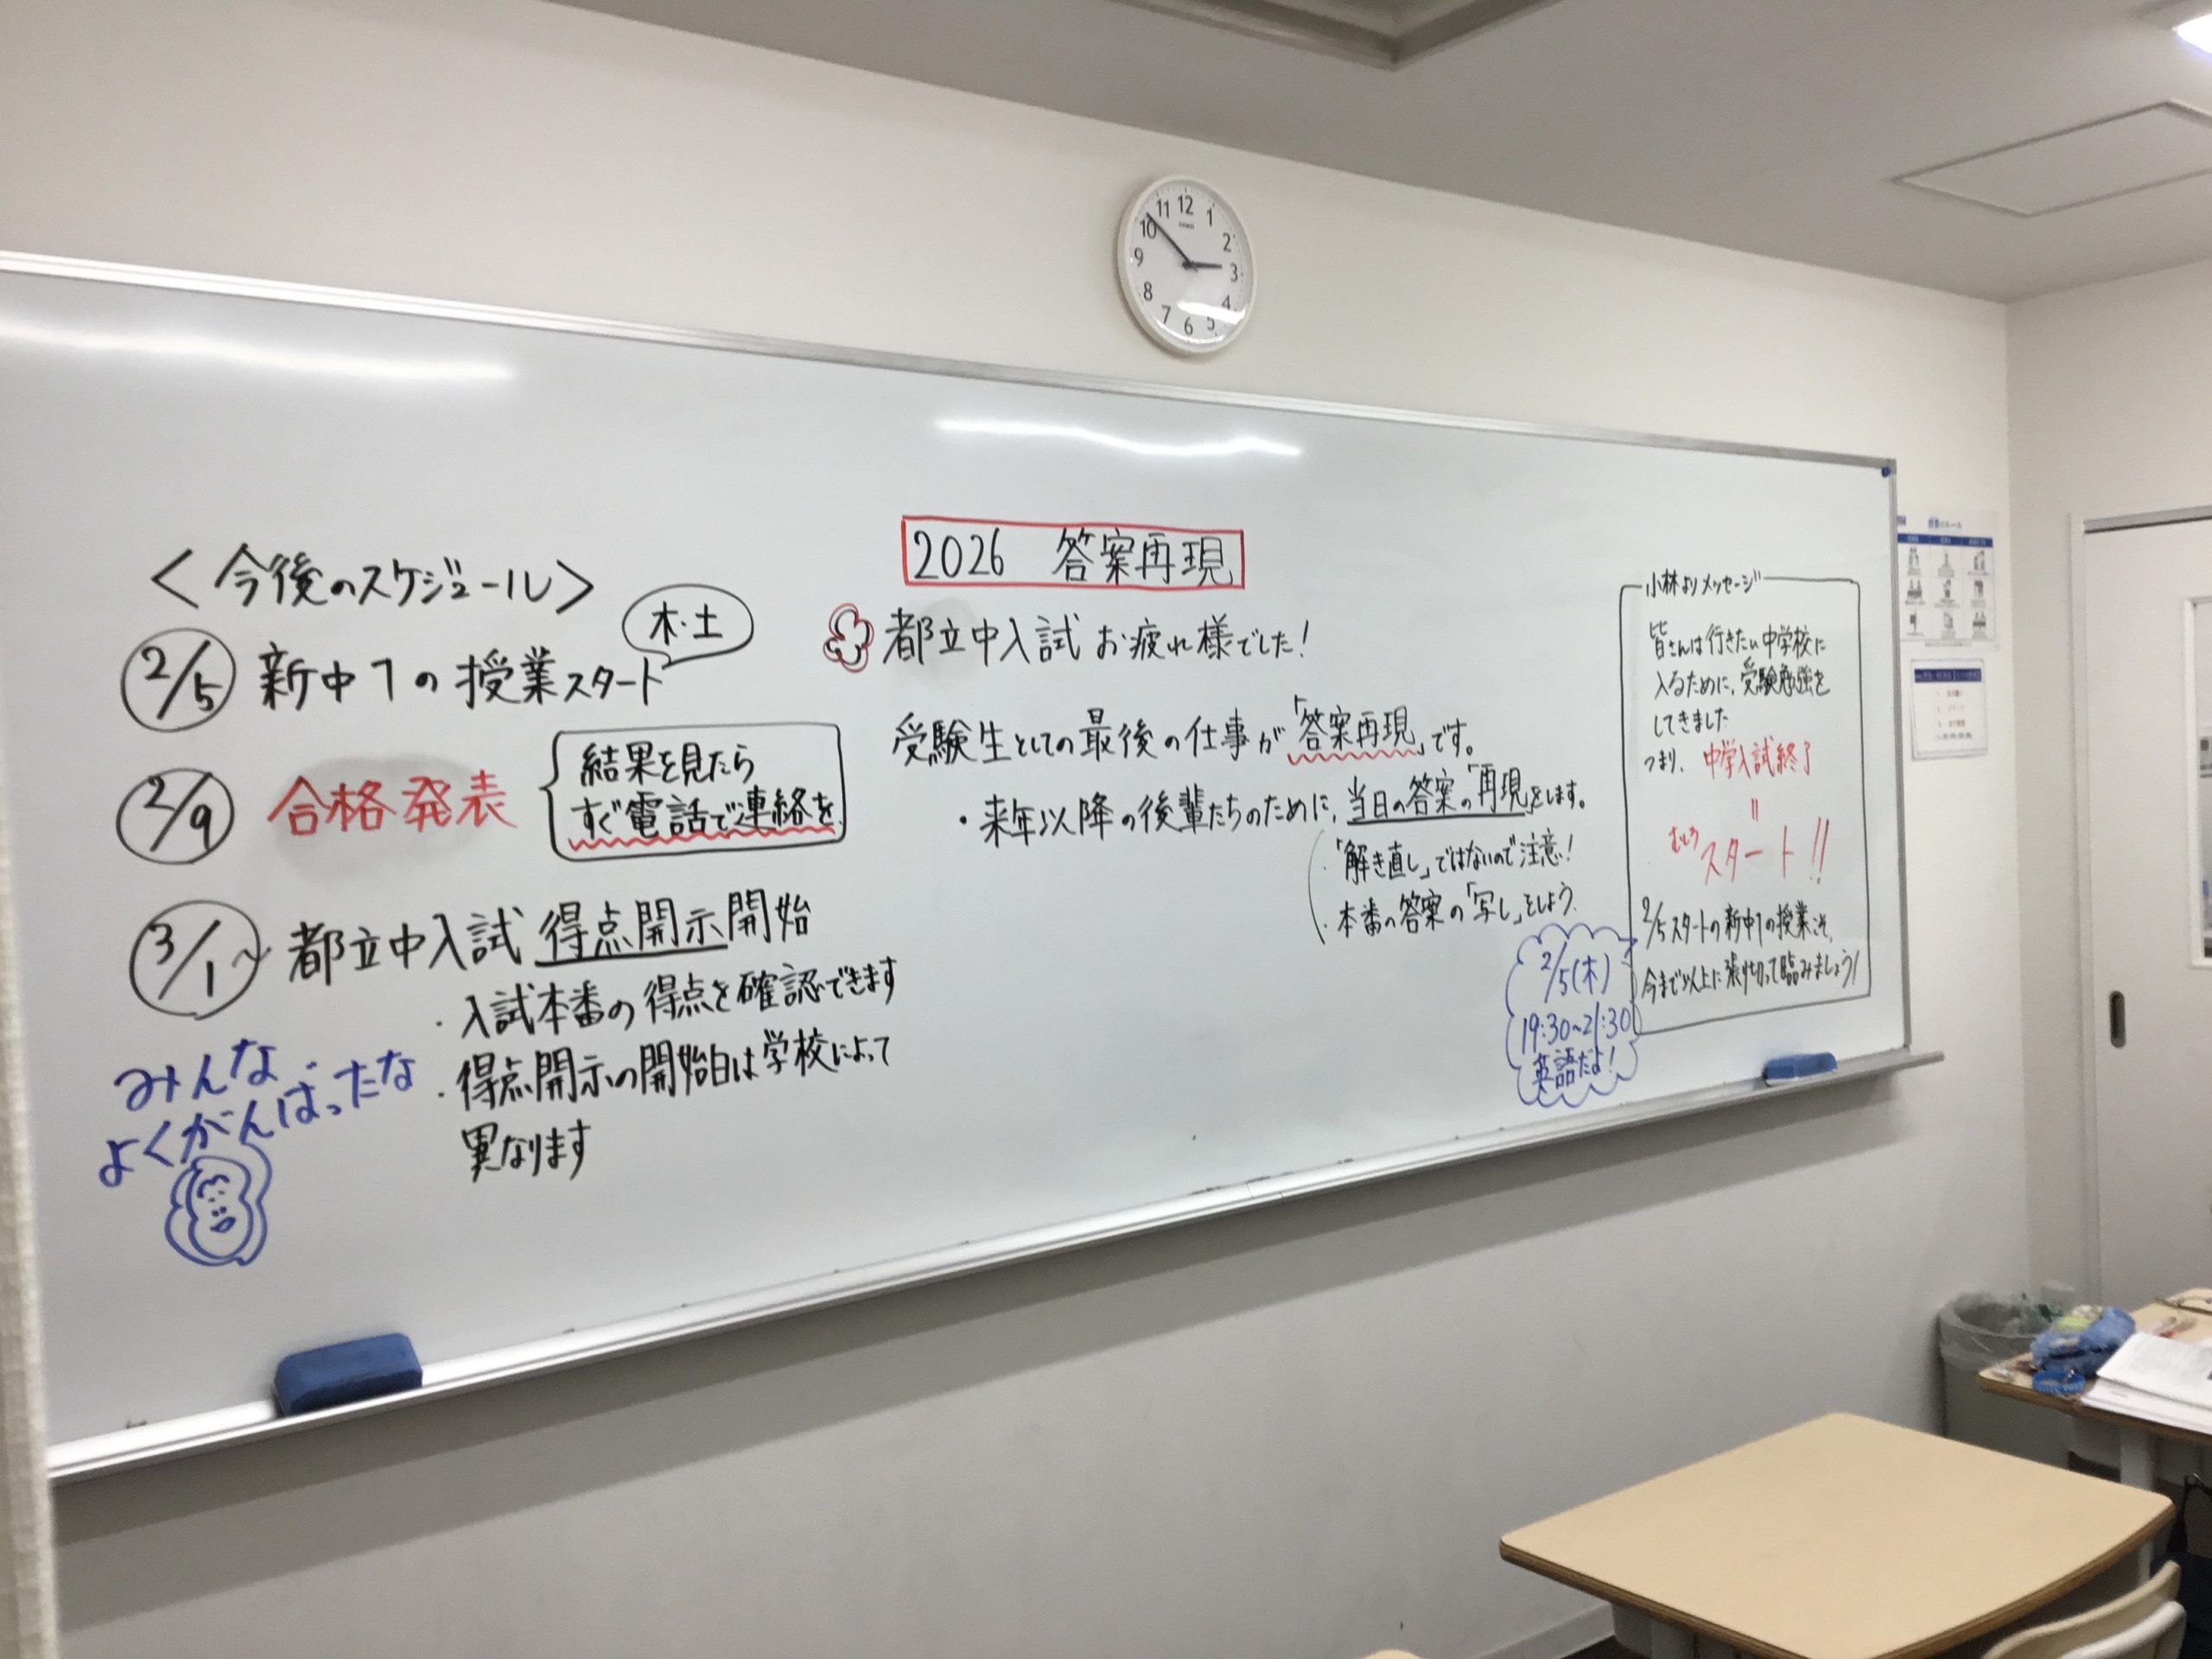 <今後のスケジュール>
2/5 新中1の授業スタート
木・土
2/9 合格発表
結果を見たら
すぐ電話で連絡を
3/1~ 都立中入試 得点開示開始
・入試本番の得点を確認できます
・得点開示の開始日は学校によって
異なります
みんな
よくがんばったな
2026 答案再現
都立中入試お疲れ様でした!
受験生としての最後の仕事が「答案再現」です。
・来年以降の後輩たちのために、当日の答案の「再現」をします。
・「解き直し」ではないので注意!
・本番の答案の「写し」をしよう。
2/5(木)
19:30~21:30
英語だよ!
小林よりメッセージ
皆さんは行きたい中学校に
入るために、受験勉強を
してきました
つまり、中学入試終了
=
むしろ
スタート!!
2/5スタートの新中1の授業こそ、
今まで以上に張り切って臨みましょう!
11 12 1
10 2
9 3
8 4
7 6 5